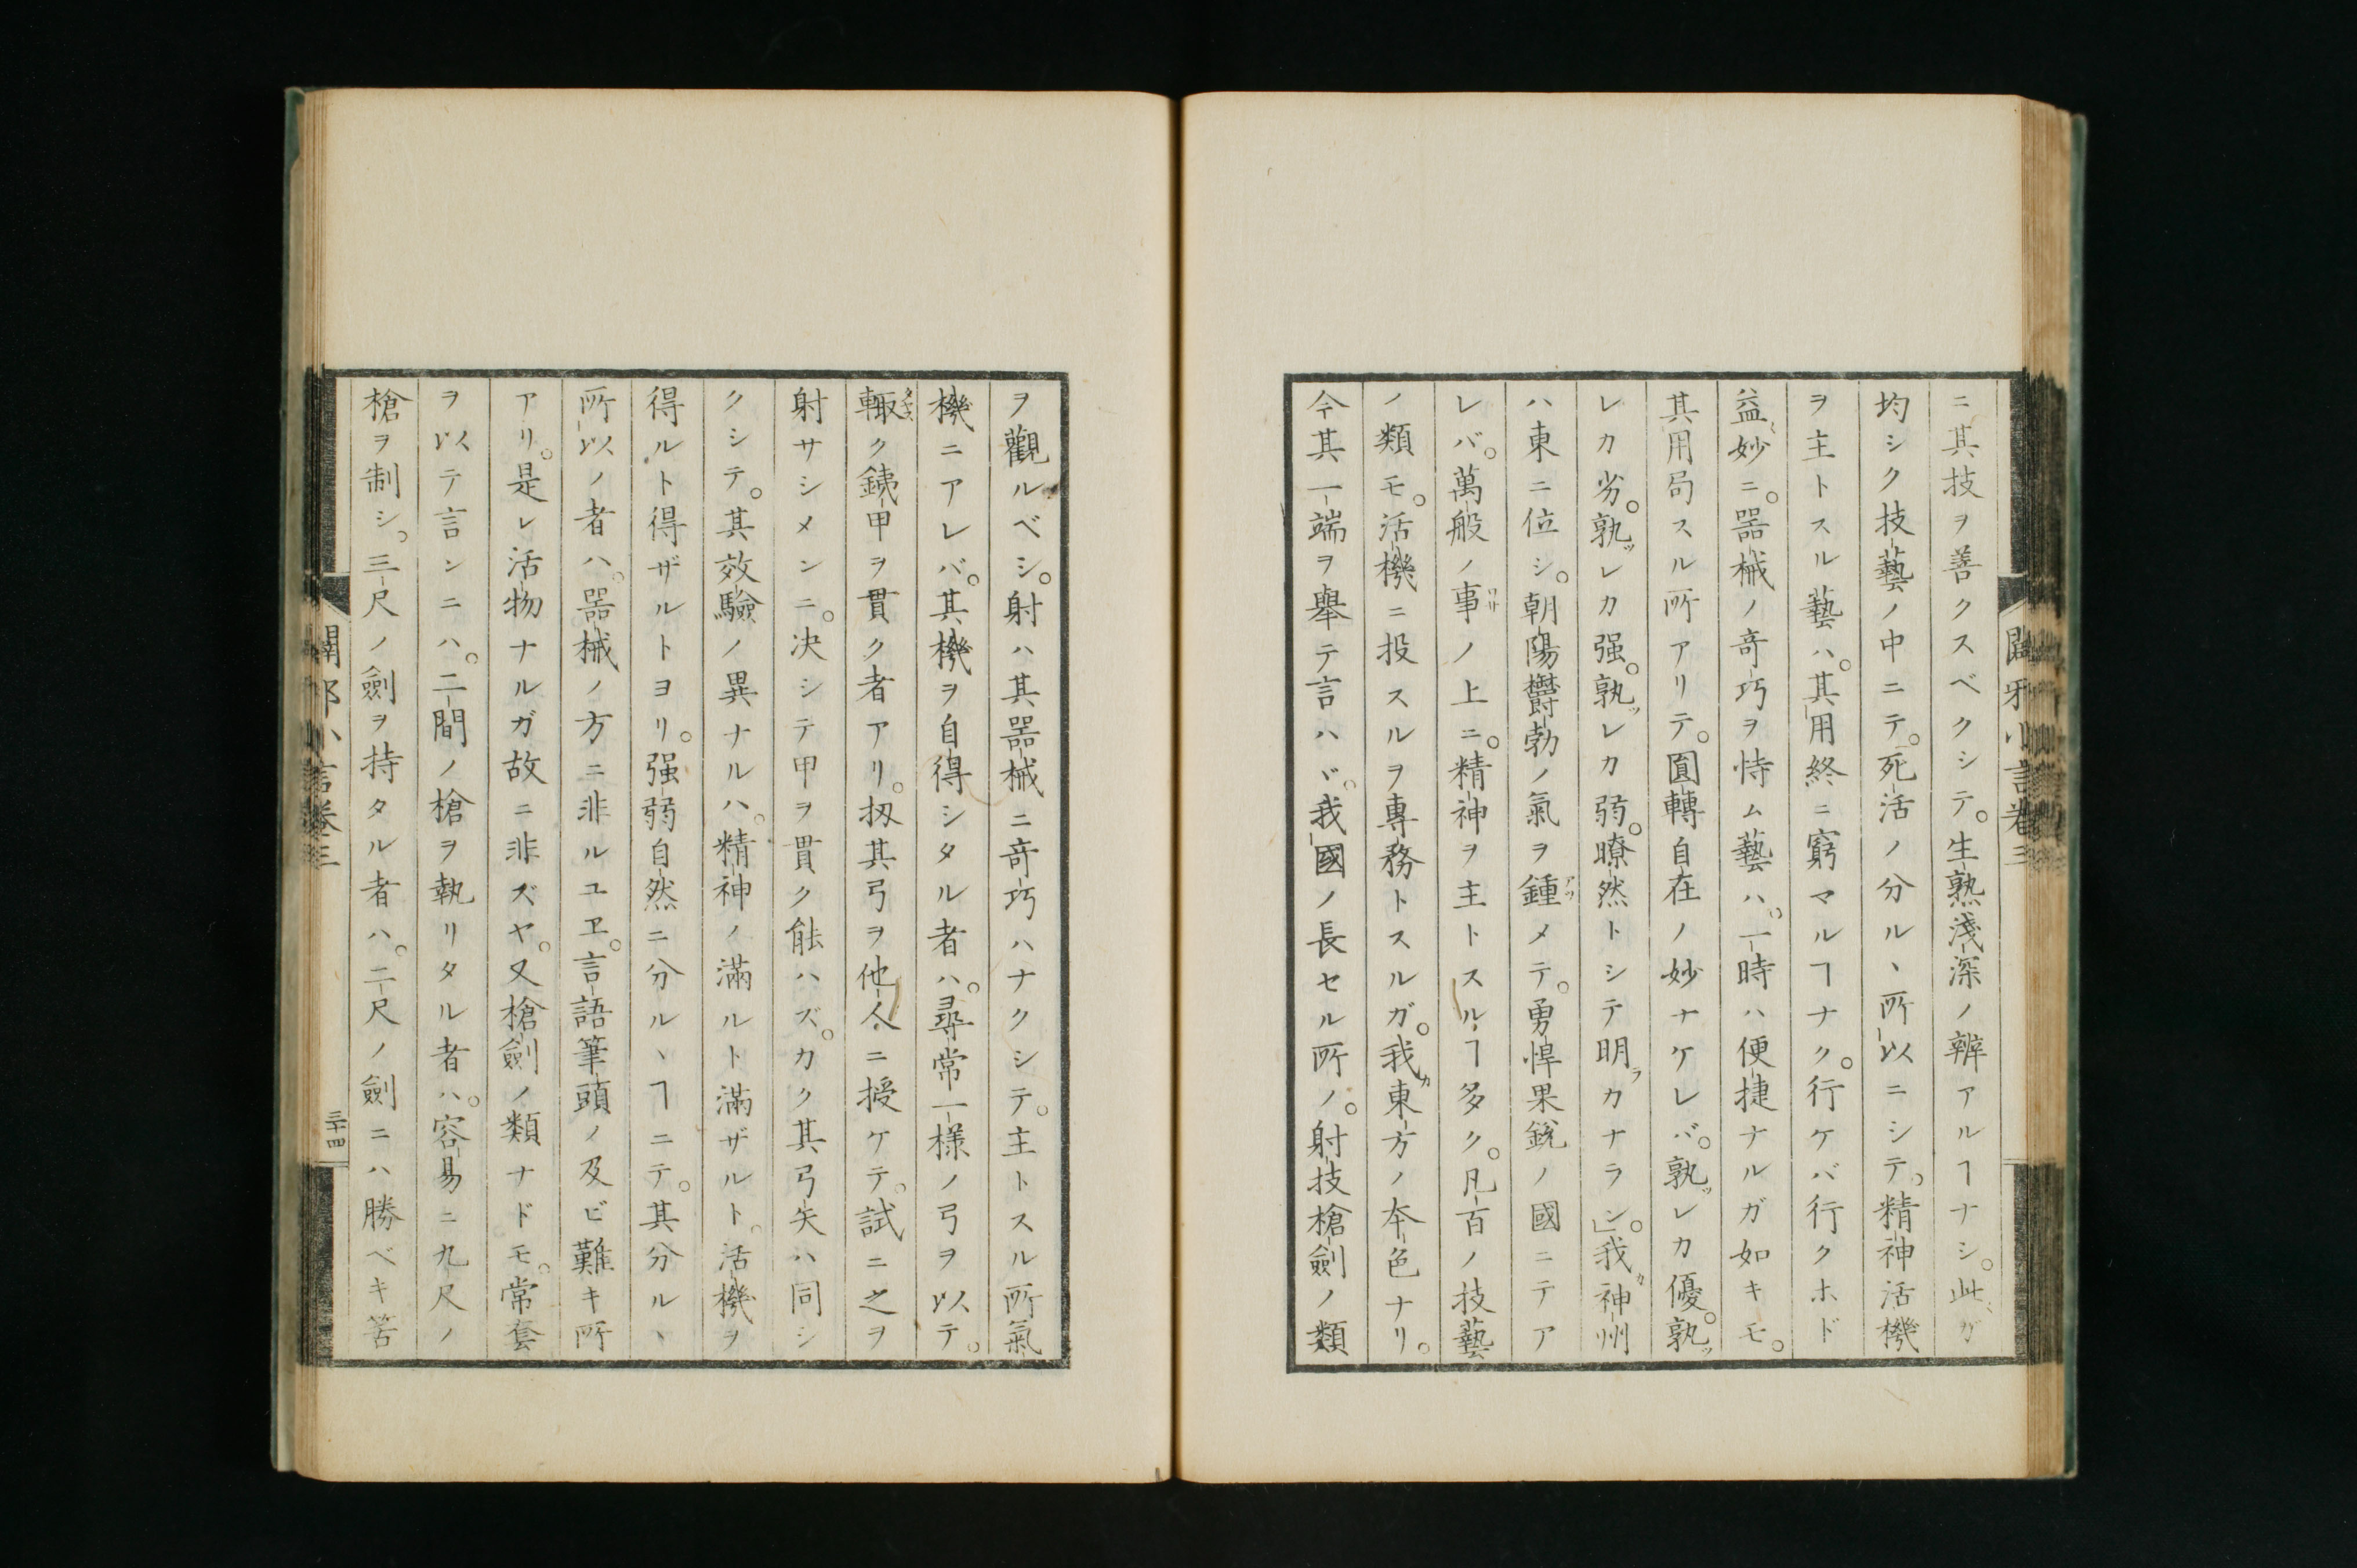 闢邪小言卷三
ニ其技ヲ善クスベクシテ。生熟淺深ノ辨アルヿナシ。此ガ
均シク技藝ノ中ニテ。死活ノ分ルヽ所以ニシテ。精神活機
ヲ主トスル藝ハ。其用終ニ窮マルヿナク。行ケバ行クホド
益〻妙ニ。器械ノ奇巧ヲ恃ム藝ハ。一時ハ便捷ナルガ如キモ。
其用局スル所アリテ。圓轉自在ノ妙ナケレバ。孰ッレカ優。孰ッ
レカ劣。孰ッレカ强。孰ッレカ弱。瞭然トシテ明ラカナラン。我カ神州
ハ東ニ位シ。朝陽欝勃ノ氣ヲ鍾アツメテ。勇悍果銳ノ國ニテア
レバ。萬般ノ事ワザノ上ニ。精神ヲ主トスルヿ多ク。凡百ノ技藝
ノ類モ。活機ニ投スルヲ專務トスルガ。我カ東方ノ本色ナリ。
今其一端ヲ舉テ言ハヾ。我國ノ長セル所ノ。射技槍劍ノ類
ヲ觀ルベシ。射ハ其器械ニ奇巧ハナクシテ。主トスル所氣
機ニアレバ。其機ヲ自得シタル者ハ。尋常一樣ノ弓ヲ以テ。
輙タヤスク銕甲ヲ貫ク者アリ。扨其弓ヲ他人ニ授ケテ。試ニ之ヲ
射サシメンニ。决シテ甲ヲ貫ク能ハズ。カク其弓矢ハ同シ
クシテ。其效驗ノ異ナルハ。精神ノ滿ルト滿ザルト。活機ヲ
得ルト得ザルトヨリ。强弱自然ニ分ルヽヿニテ。其分ルヽ
所以ノ者ハ。器械ノ方ニ非ルユヱ。言語筆頭ノ及ビ難キ所
アリ。是レ活物ナルガ故ニ非ズヤ。又槍劍ノ類ナドモ。常套
ヲ以テ言ンニハ。二間ノ槍ヲ執リタル者ハ。容易ニ九尺ノ
槍ヲ制シ。三尺ノ劍ヲ持タル者ハ。二尺ノ劍ニハ勝ベキ筈
闢邪小言卷三
三十四